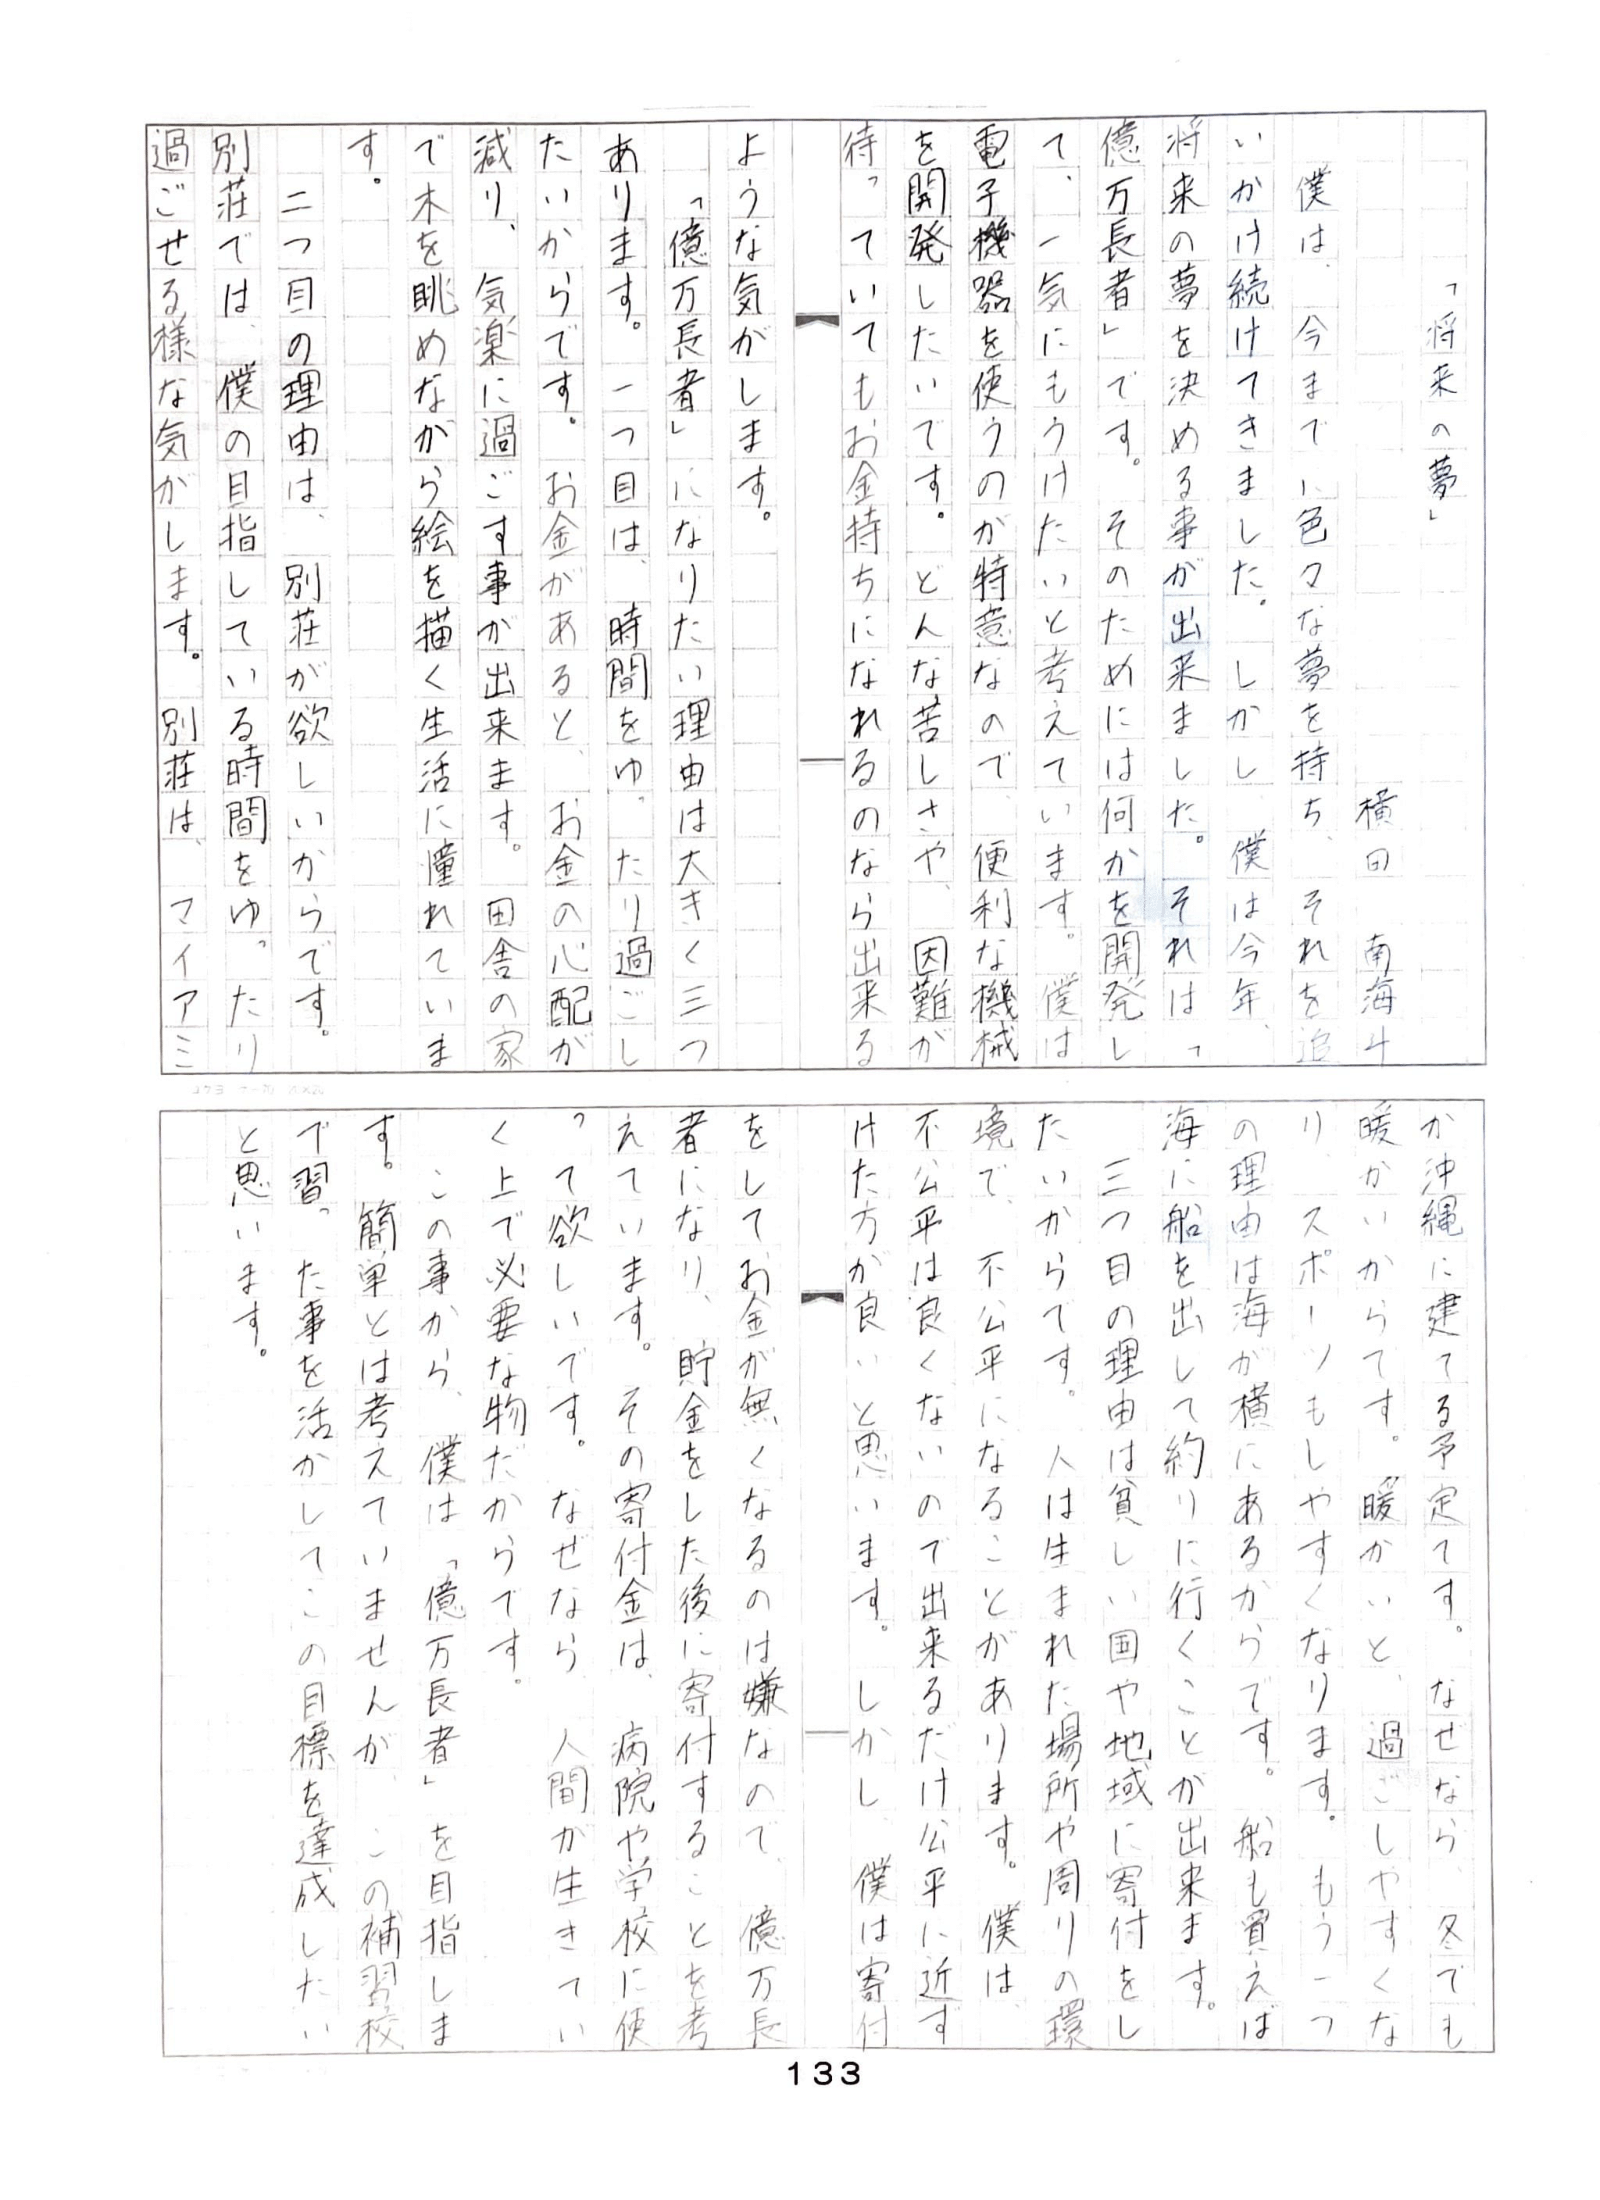 「将来の夢」
横田　南海斗
僕は、今までに色々な夢を持ち、それを追
いかけ続けてきました。しかし、僕は今年、
将来の夢を決める事が出来ました。それは「
億万長者」です。そのためには何かを開発し
て、一気にもうけたいと考えています。僕は
電子機器を使うのが特意なので、便利な機械
を開発したいです。どんな苦しさや、因難が
待っていてもお金持ちになれるのなら出来る
ような気がします。
「億万長者」になりたい理由は大きく三つ
あります。一つ目は、時間をゆったり過ごし
たいからです。お金があると、お金の心配が
減り、気楽に過ごす事が出来ます。田舎の家
で木を眺めながら絵を描く生活に憧れていま
す。
二つ目の理由は、別荘が欲しいからです。
別荘では、僕の目指している時間をゆったり
過ごせる様な気がします。別荘は、マイアミ
か沖縄に建てる予定です。なぜなら、冬でも
暖かいからです。暖かいと、過ごしやすくな
り、スポーツもしやすくなります。もう一つ
の理由は海が横にあるからです。船も買えば
海に船を出して約りに行くことが出来ます。
三つ目の理由は貧しい国や地域に寄付をし
たいからです。人は生まれた場所や周りの環
境で、不公平になることがあります。僕は、
不公平は良くないので出来るだけ公平に近ず
けた方が良いと思います。しかし、僕は寄付
をしてお金が無くなるのは嫌なので、億万長
者になり、貯金をした後に寄付することを考
えています。その寄付金は、病院や学校に使
って欲しいです。なぜなら、人間が生きてい
く上で必要な物だからです。
この事から、僕は「億万長者」を目指しま
す。簡単とは考えていませんが、この補習校
で習った事を活かしてこの目標を達成したい
と思います。
133